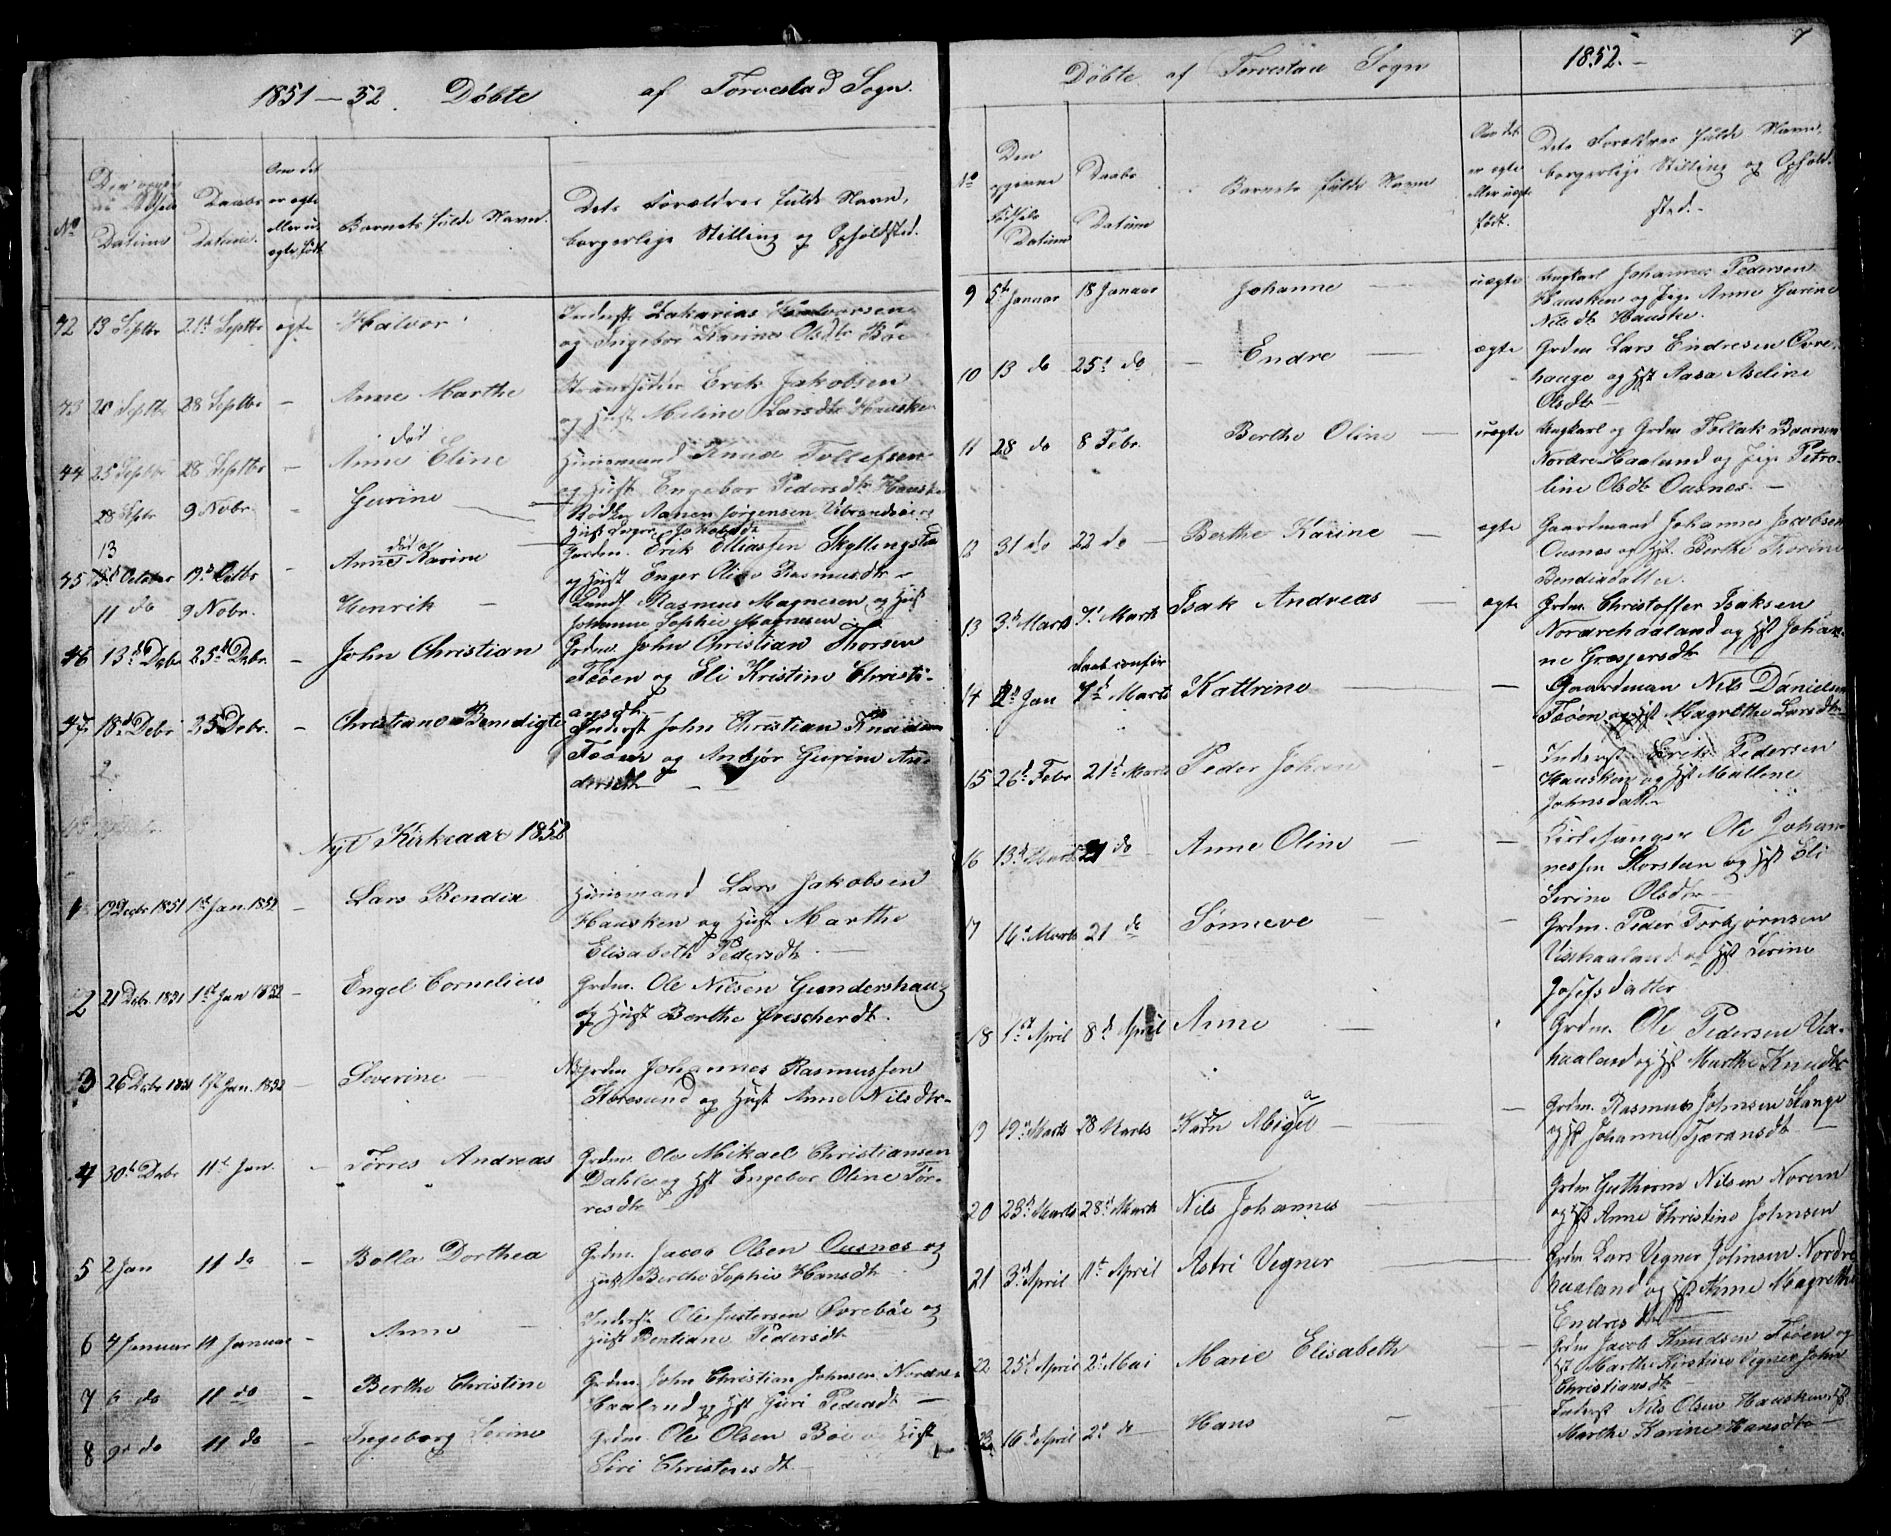 1851-52. Döbte af Torvestad Sogn.
No
Datum
Daabs Datum.
Om det er egte eller uegte født
Barnets fulde Navn.
Dets Forældres fulde Navn, borgerlige Stilling og Opholdsted.
42 13 Septbr 21d Septbr egte Halvor
Inderst Zakarias Halvorsen
og Ingebor Karine Olsdtr Böe
43 28 Septbr — Anne Marthe
Strandsidder Erik Jakobsen
og Hust Meline Larsdtr Hausken
død
44 25 Septbr 28 Septbr — Anne Eline
Huusmand Knud Tollefsen
og Hust Engebor Pedersdtr Hausken
28 Septbr 9 Nobr. — Gurine
Jørgensen Vibrandsöe
Hust Jakobsdtr
13
død
45 October 19d Octbr Anne Karine
Gardm. Erik Elliassen Skyllingstad
og Hust Enger Oline Rasmusdtr
11 do 9 Nobr. Henrik —
Rasmus Magnesen og Hust
Johanne Sophie Magnesen
46 13d Debr 25d Debr. — John Christian
Grdm. John Christian Thorsen
Føöen og Eli Kristine Christi-
ansdtr
47 18d Debr 25d Debr. — Christiane Benedigte
Inderst John Christian Knudsen
Føöen og Anbjør Gurine An-
dersdtr
Nyt Kirkeaar 1852
1 19 Decbr 1851 1st Jan. 1852 — Lars Bendix
Huusmand Lars Jakobsen
Hausken og Hust Marthe
Elisabeth Pedersdtr
2 21 Debr. 1851 1st Jan 1852 — Engel Cornelius
Grdm. Ole Nilsen Gundershaug
og Hust Berthe
3 26 Debr 1851 1st Jan. 1852 — Severine —
Grdm Johannes Rasmussen
Storesund og Hust Anne Nilsdtr
4 30d Debr 11d Jan. — Tørres Andreas
Grdm. Ole Mikael Christiansen
Dahle og Hst Engebor Oline Tør-
resdtr
5 2 Jan 11 do — Bolla Dorthea
Grdm. Jacob Olsen Ousnes og
Hust Berthe Sophie Hansdtr
6 4 Januar 11 Januar — Anne —
Inderst Ole Justersen Øvreböe og
Hust Bentiane Pedersdtr
7 6 do 11 do — Berthe Christine
Grdm. John Christian Johnsen Nordre
Haaland og Hst Guri Pedersdtr
8 9d do 11 do — Ingeborg Serine
Grdm. Ole Olsen Böe og Hust
Siri Christensdtr
7
Döbte af Torvestad Sogn 1852. —
No
Den opgivne Fødsels Datum
Daabs Datum
Barnets fulde Navn
Om det er egte eller uegte født.
Dets Forældres fulde Navn, borgerlige Stilling og Ophold-
sted. —
9 5te Januar 18 Januar Johanne — uægte
Ungkarl Johannes Pedersen
Hausken og Pige Anne Gurine
Nilsdtr Hausken
10 13 do 25d do — Endre — ægte
Grdm Lars Endresen Øvre-
houge og Hst Aasa Aseline
Olsdtr
11 28 do 8 Febr. Berthe Oline — uægte
Ungkarl og Grdm Tollak Baarsen
Nordre Haaland og Pige Petro-
line Olsdtr Ousnes —
12 31 do 22 do — Berthe Karine — egte
Gaardmand Johannes Jacobsen
Ousnes og Hst. Berthe Thorine
Bendixdatter.
13 3d Marts 7d Marts Isak Andreas — egte
Grdm. Christoffer Isaksen
Nordrehaaland og Hst Johan-
ne Gresjersdtr
daab confir
14 2d Jan 7d Marts Kattrine —
Gaardman Nils Danielsen
Føöen og Hst Magrethe Larsdtr
15 26d Febr 21d Marts Peder Johan
Inderst Erik Pedersen
Hausken og Hst Mallene
Johnsdatter
16 13d Marts 21 do Anne Oline —
Kirkesanger Ole Johan-
nessen Storstein og Hst Eli
Serine Olsdtr
17 16d Marts 21 do Sønneve —
Grdm. Peder Torbjørnsen
Visthaaland og Hst Serine
Josefsdatter
18 1st April 8d April Anne —
Grdm. Ole Pedersen Vea-
haaland og Hst Marthe Knudsdtr
19 19d Marts 28 Marts Karn Abigel —
Grdm. Rasmus Johnsen Stange
og Hst Johanne Tjøransdtr
20 23d Marts 28d Marts Nils Johannes —
Grdm Guthorm Nilsen Norem
og Hst Anne Christine Johnsen
21 3d April 11t April Astri Vegner
Grdm Lars Vegner Johnsen Nordre
haaland og Hst Anne Magrethe
Endresdtr
22 25d April 2d Mai Marie Elisabeth
Grdm Jacob Knudsen Føöen og
Hst Marthe Kirstine Vegner John
Christiansdtr
23 16d April 2d do Hans —
Inderst Nils Olsen Hausken og Hst
Marthe Karine Hansdtr —